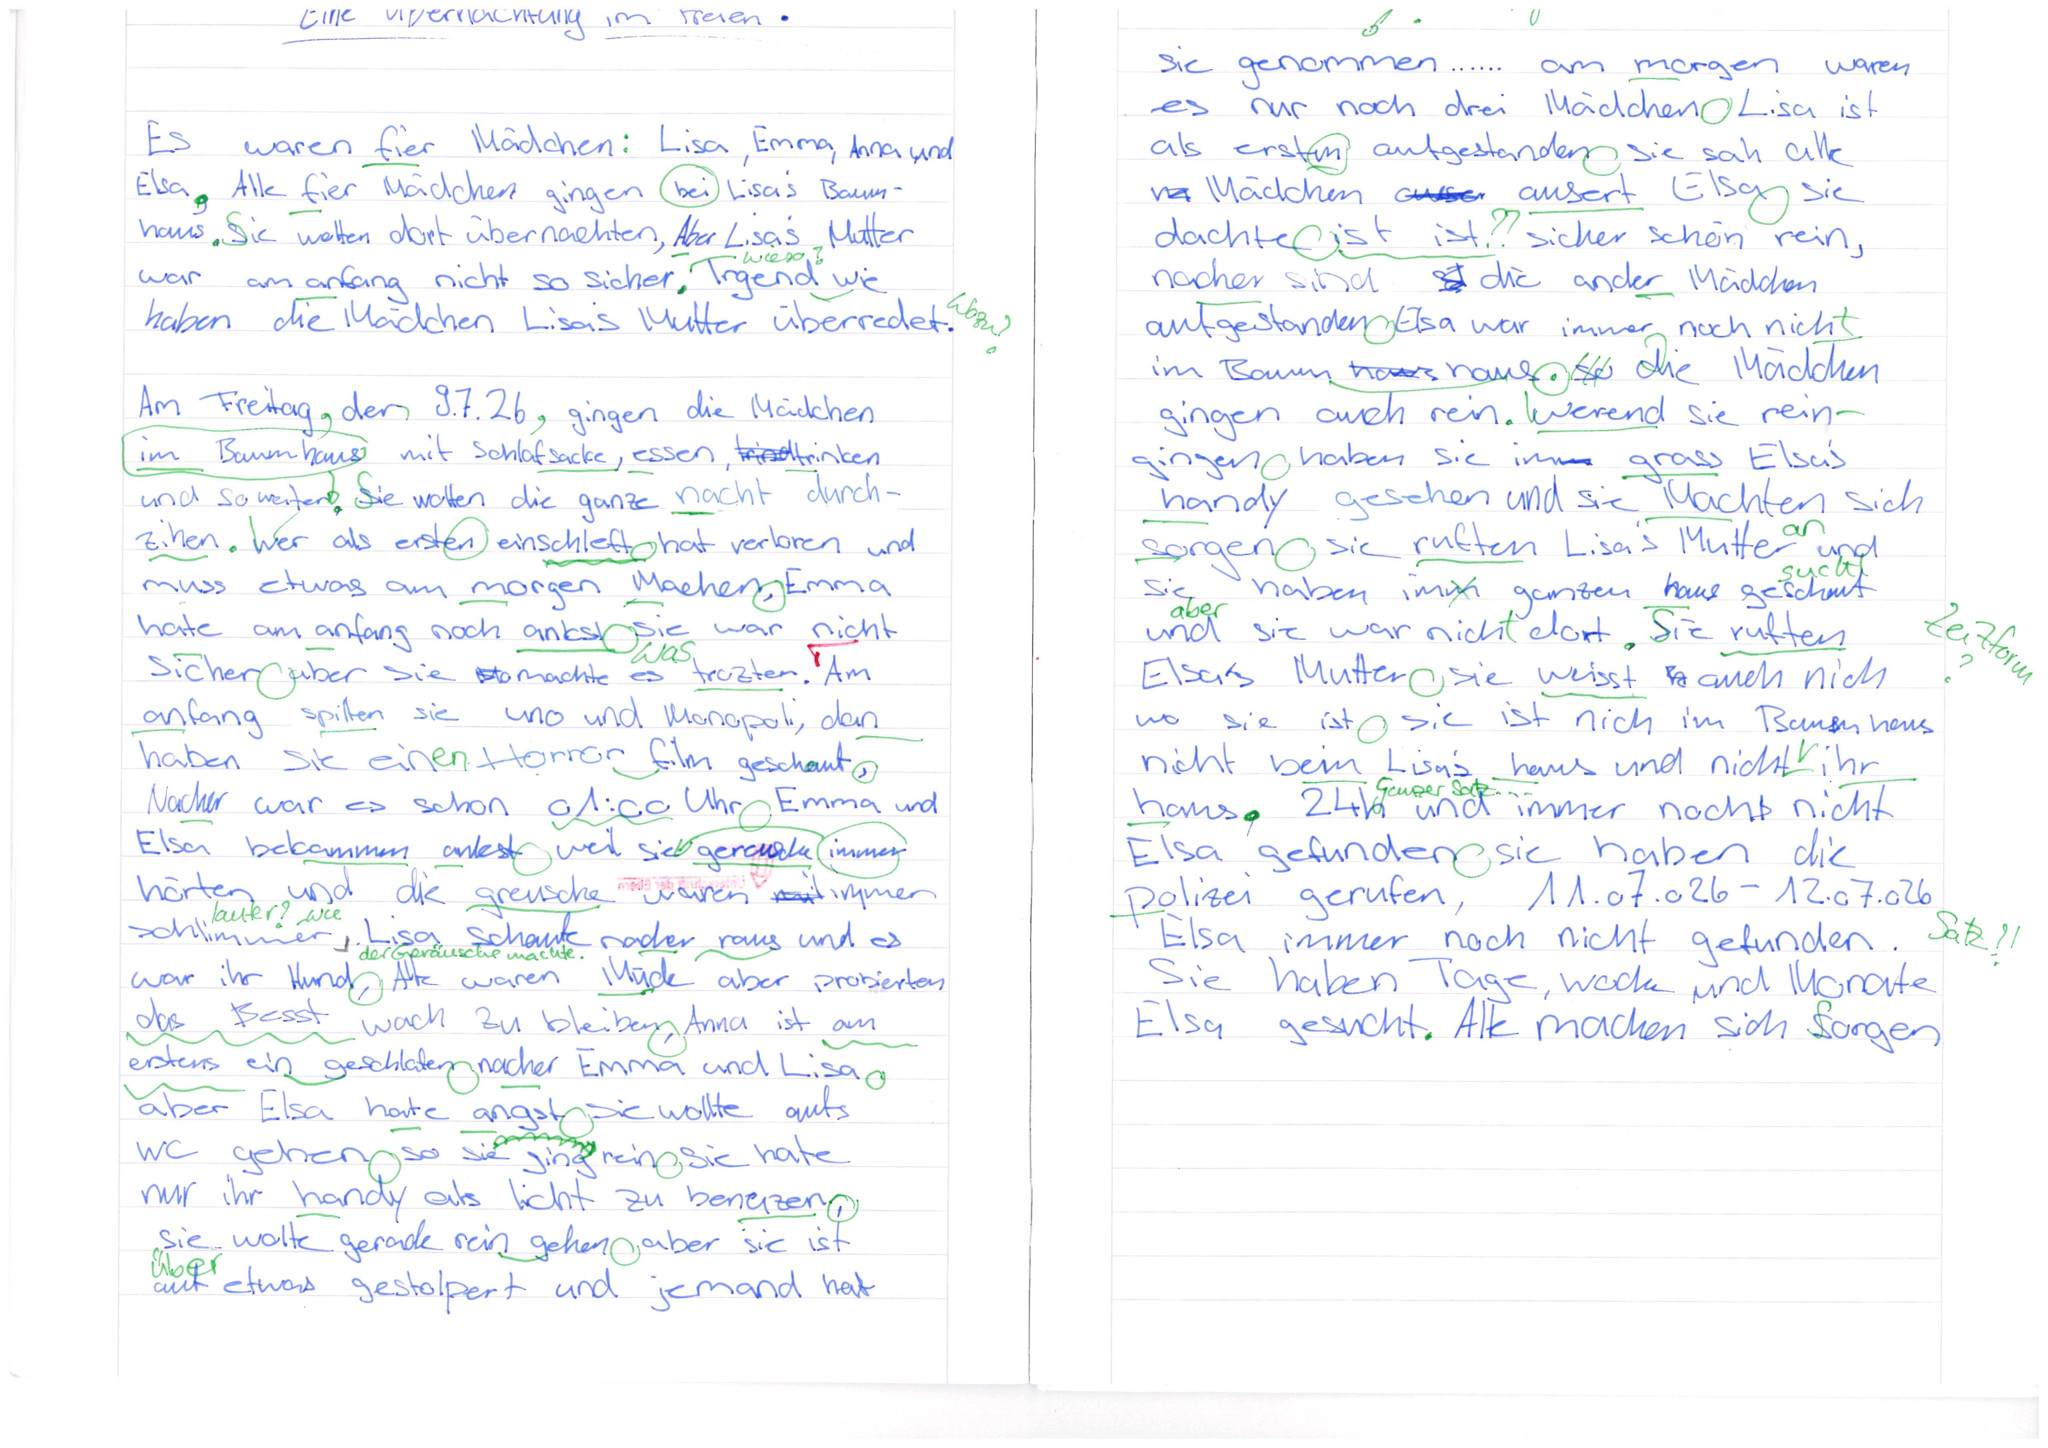 Eine Übernachtung im Freien.
Es waren fier Mädchen: Lisa, Emma, Anna und
Elsa. Alle fier Mädchen gingen bei Lisa's Baum-
haus. Sie wolten dort übernachten, Aber Lisa's Mutter
wieso?
war am anfang nicht so sicher. Irgend wie
haben die Mädchen Lisa's Mutter überredet.
Wozu?
Am Freitag, den 9.7.26, gingen die Mädchen
im Baumhaus mit Schlafsacke, essen, trinken
und so weiter. Sie wolten die ganze nacht durch-
zihen. Wer als ersten einschleft hat verloren und
muss etwas am morgen Machen, Emma
hate am anfang noch ankst sie war nicht
Sicher aber sie machte es trozten. Am
was
anfang spilten sie uno und Monopoli, dan
haben sie einen Horror film geschaut,
Nacher war es schon 01:00 Uhr Emma und
Elsa bekammen ankst weil sie gereusche immer
hörten und die greusche waren immer
lauter? wie
schlimmer, Lisa schaute nacher raus und es
der Geräusche machte.
war ihr Hund, Alle waren Müde aber probierten
das Besst wach zu bleiben, Anna ist am
erstens ein geschlafen nacher Emma und Lisa
aber Elsa hate angst sie wollte aufs
WC gehen so sie ging rein sie hate
nur ihr handy als licht zu benuzen,
sie wolte gerade rein gehen aber sie ist
über
auf etwas gestolpert und jemand hat
sie genommen...... am morgen waren
es nur noch drei Mädchen Lisa ist
als ersten aufgestanden sie sah alle
Mädchen ausert Elsa sie
dachte ist ist?? sicher schon rein,
nacher sind die ander Mädchen
aufgestanden Elsa war immer noch nicht
im Baum haus. die Mädchen
gingen auch rein. Werend sie rein-
gingen haben sie im grass Elsa's
handy gesehen und sie Machten sich
an
sorgen sie ruften Lisa's Mutter und
sucht
sie haben im ganzen haus geschaut
aber
und sie war nicht dort. Sie ruften
Zeitform?
Elsa's Mutter sie weisst auch nich
wo sie ist sie ist nich im Baum haus
nicht beim Lisa's haus und nicht ihr
Ganzer Satz...
haus. 24h und immer noch nicht
Elsa gefunden sie haben die
polizei gerufen, 11.07.026 - 12.07.026
Elsa immer noch nicht gefunden.
Satz?!
Sie haben Tage, woche und Monate
Elsa gesucht. Alle machen sich Sorgen